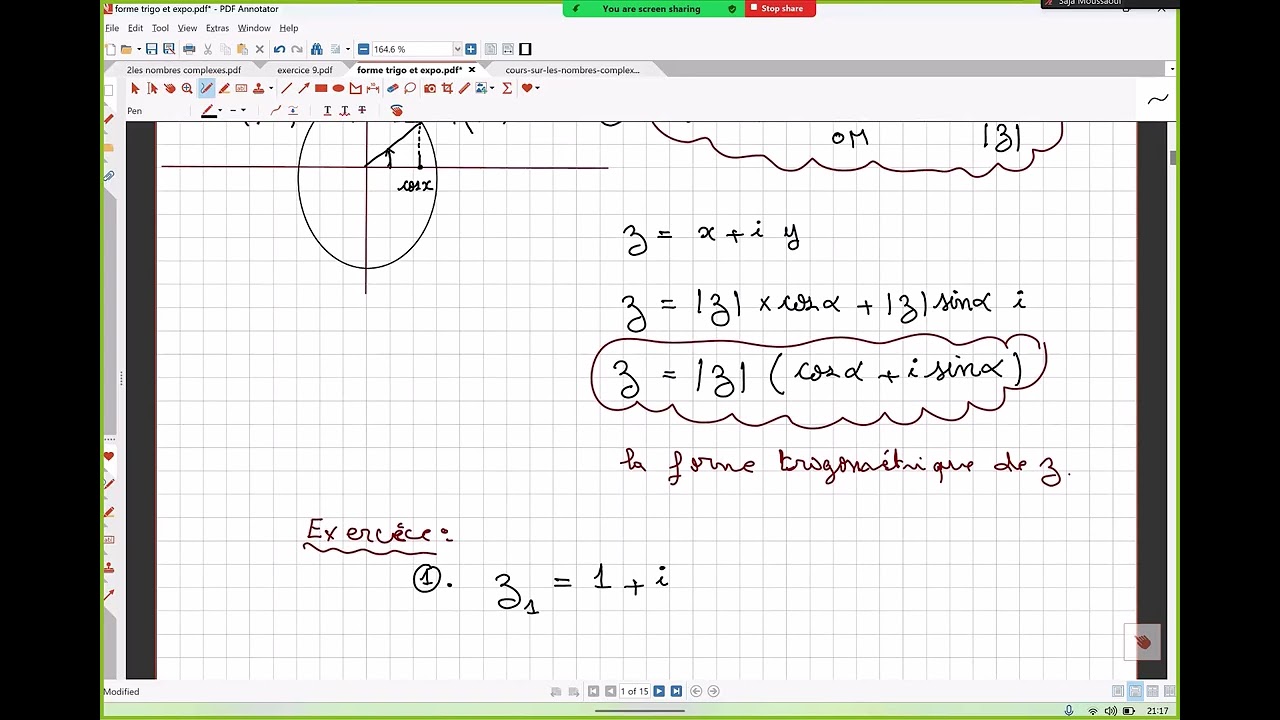 forme trigo et expo.pdf* - PDF Annotator
You are screen sharing
Stop share
Saja Moussaoui
File Edit Tool View Extras Window Help
164.6 %
2les nombres complexes.pdf exercice 9.pdf forme trigo et expo.pdf* cours-sur-les-nombres-complex...
Pen
OM |z|
cosx
z = x + i y
z = |z| × cosα + |z| sinα i
z = |z| ( cosα + i sinα )
la forme trigonométrique de z.
Exercice :
①. z₁ = 1 + i
Modified
1 of 15
21:17